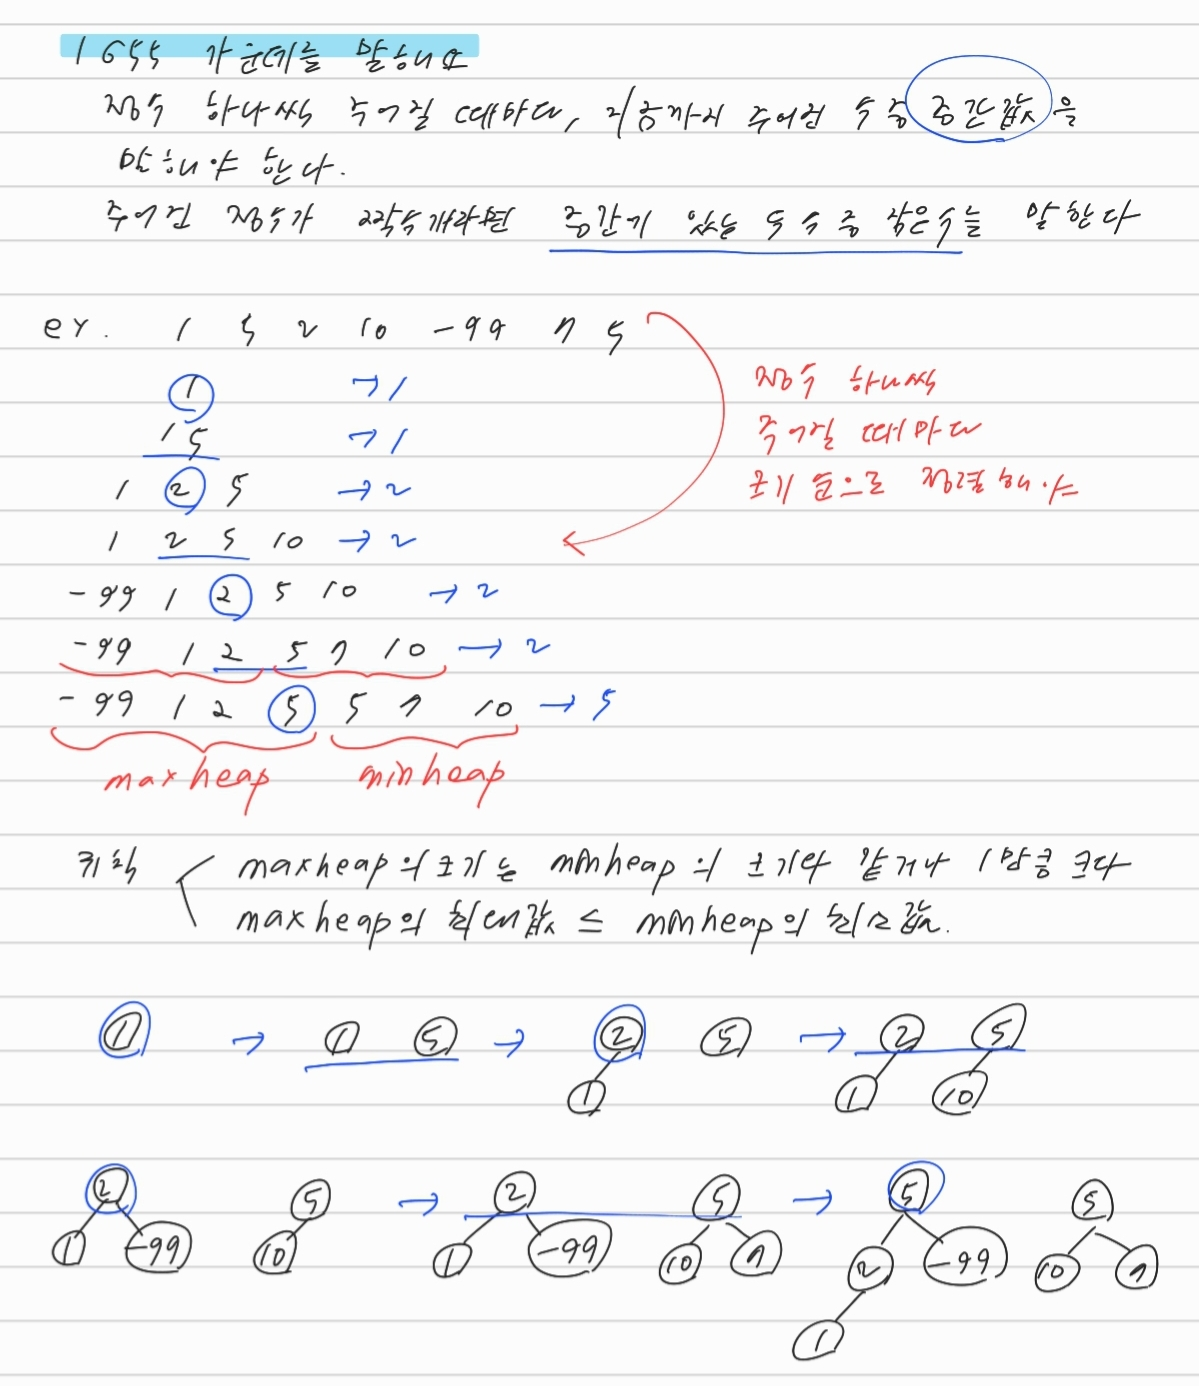 1655 가운데를 말해요
정수 하나씩 주어질 때마다, 지금까지 주어진 수 중 중간값을
말해야 한다.
주어진 정수가 짝수개라면 중간에 있는 두 수 중 작은수를 말한다
ex. 1 5 2 10 -99 7 5
1 → 1
1 5 → 1
1 2 5 → 2
1 2 5 10 → 2
-99 1 2 5 10 → 2
-99 1 2 5 7 10 → 2
-99 1 2 5 5 7 10 → 5
maxheap minheap
정수 하나씩
주어질 때마다
크기 순으로 정렬해야
규칙
maxheap의 크기는 minheap의 크기와 같거나 1만큼 크다
maxheap의 최대값 ≤ minheap의 최소값.
1 → 1 5 → 2 5 → 2 5
1 1 10
2 5 → 2 5 → 5 5
1 -99 10 1 -99 10 7 2 -99 10 7
1